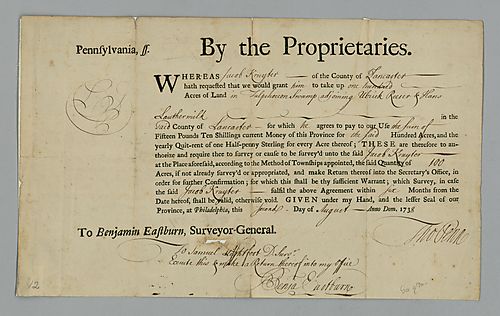 Pennsylvania, ſſ. By the Proprietaries.
WHEREAS Jacob Kruyter of the County of Lancaster
hath requested that we would grant him to take up one hundred
Acres of Land in Swamp adjoining Ulrick & Hans
in the
said County of Lancaster for which he agrees to pay to our Use the sum of
Fifteen Pounds Ten Shillings current Money of this Province for the said Hundred Acres, and the
yearly Quit-rent of one Half-penny Sterling for every Acre thereof; THESE are therefore to au-
thorize and require thee to survey or cause to be survey'd unto the said Jacob Kruyter
at the Place aforesaid, according to the Method of Townships appointed, the said Quantity of 100
Acres, if not already survey'd or appropriated, and make Return thereof into the Secretary's Office, in
order for further Confirmation; for which this shall be thy sufficient Warrant; which Survey, in case
the said Jacob Kruyter fulfil the above Agreement within six Months from the
Date hereof, shall be valid, otherwise void. GIVEN under my Hand, and the lesser Seal of our
Province, at Philadelphia, this Second Day of August Anno Dom. 1738
To Benjamin Eastburn, Surveyor-General.
Tho Penn
To Samuel D. Survr
Execute this & make a Return thereof into my Office
Benja Eastburn
12